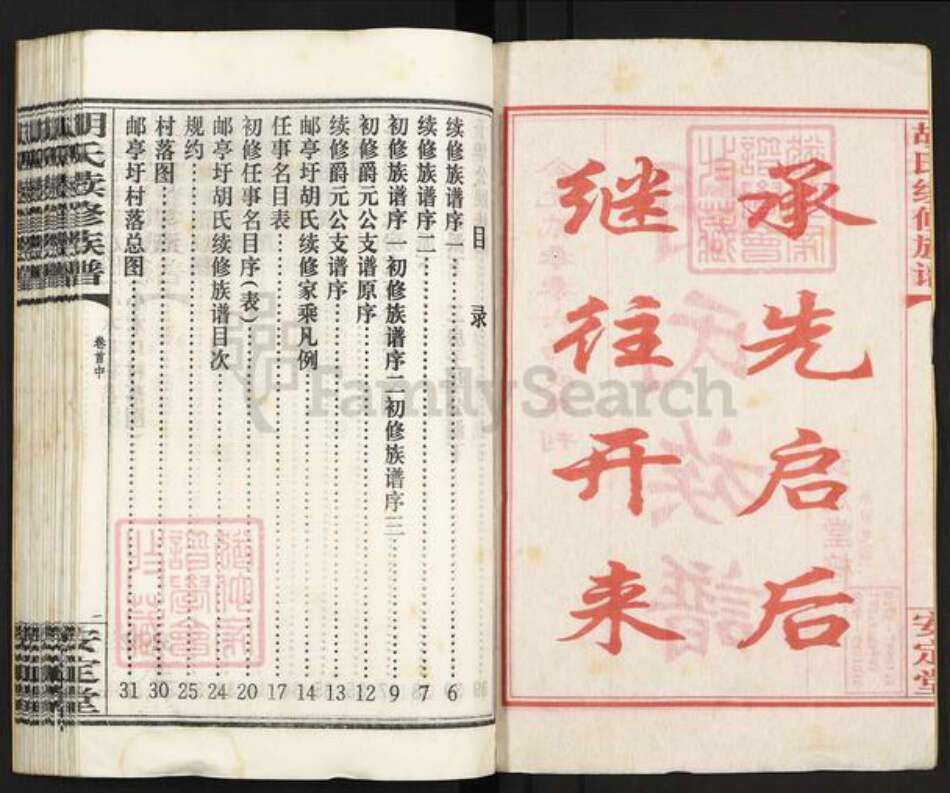 胡氏续修族谱
安定堂
承先启后
继往开来
目录
续修族谱序一 6
续修族谱序二 7
初修族谱序一初修族谱序二初修族谱序三 9
初修爵元公支谱原序 12
续修爵元公支谱序 13
邮亭圩胡氏续修家乘凡例 14
任事名目表 17
初修任事名目序(表) 20
邮亭圩胡氏续修族谱目次 24
规约 25
村落图 30
邮亭圩村落总图 31
胡氏续修族谱
卷首中
一
安定堂
FamilySearch